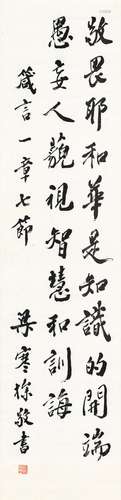 敬畏耶和華是知識的開端
愚妄人藐視智慧和訓誨
箴言一章七節
梁寒操敬書